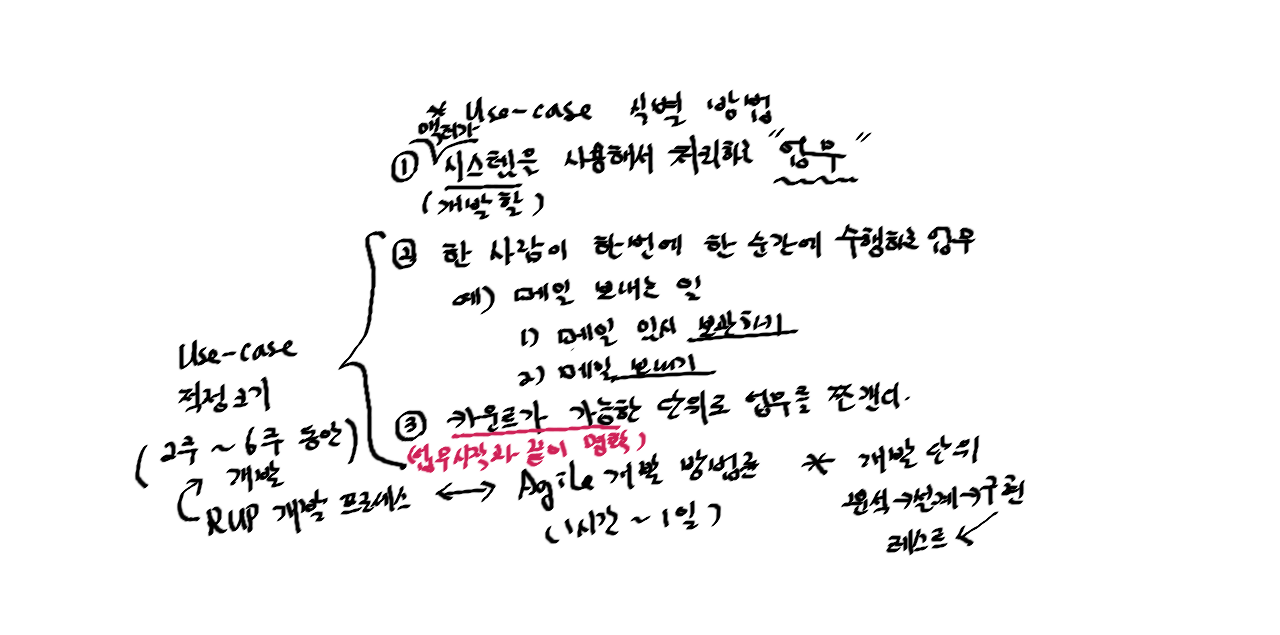 * Use-case 식별 방법
액터가
① 시스템을 사용해서 처리하는 "업무"
(개발할)
② 한 사람이 한번에 한 순간에 수행하는 업무
예) 메일 보내는 일
1) 메일 임시 보관하기
2) 메일 보내기
③ 카운트가 가능한 단위로 업무를 쪼갠다.
(업무시작과 끝이 명확)
Use-case
적정크기
(2주 ~ 6주 동안)
개발
RUP 개발 프로세스 ↔ Agile 개발 방법론
(1시간 ~ 1일)
* 개발 단위
분석→설계→구현
테스트